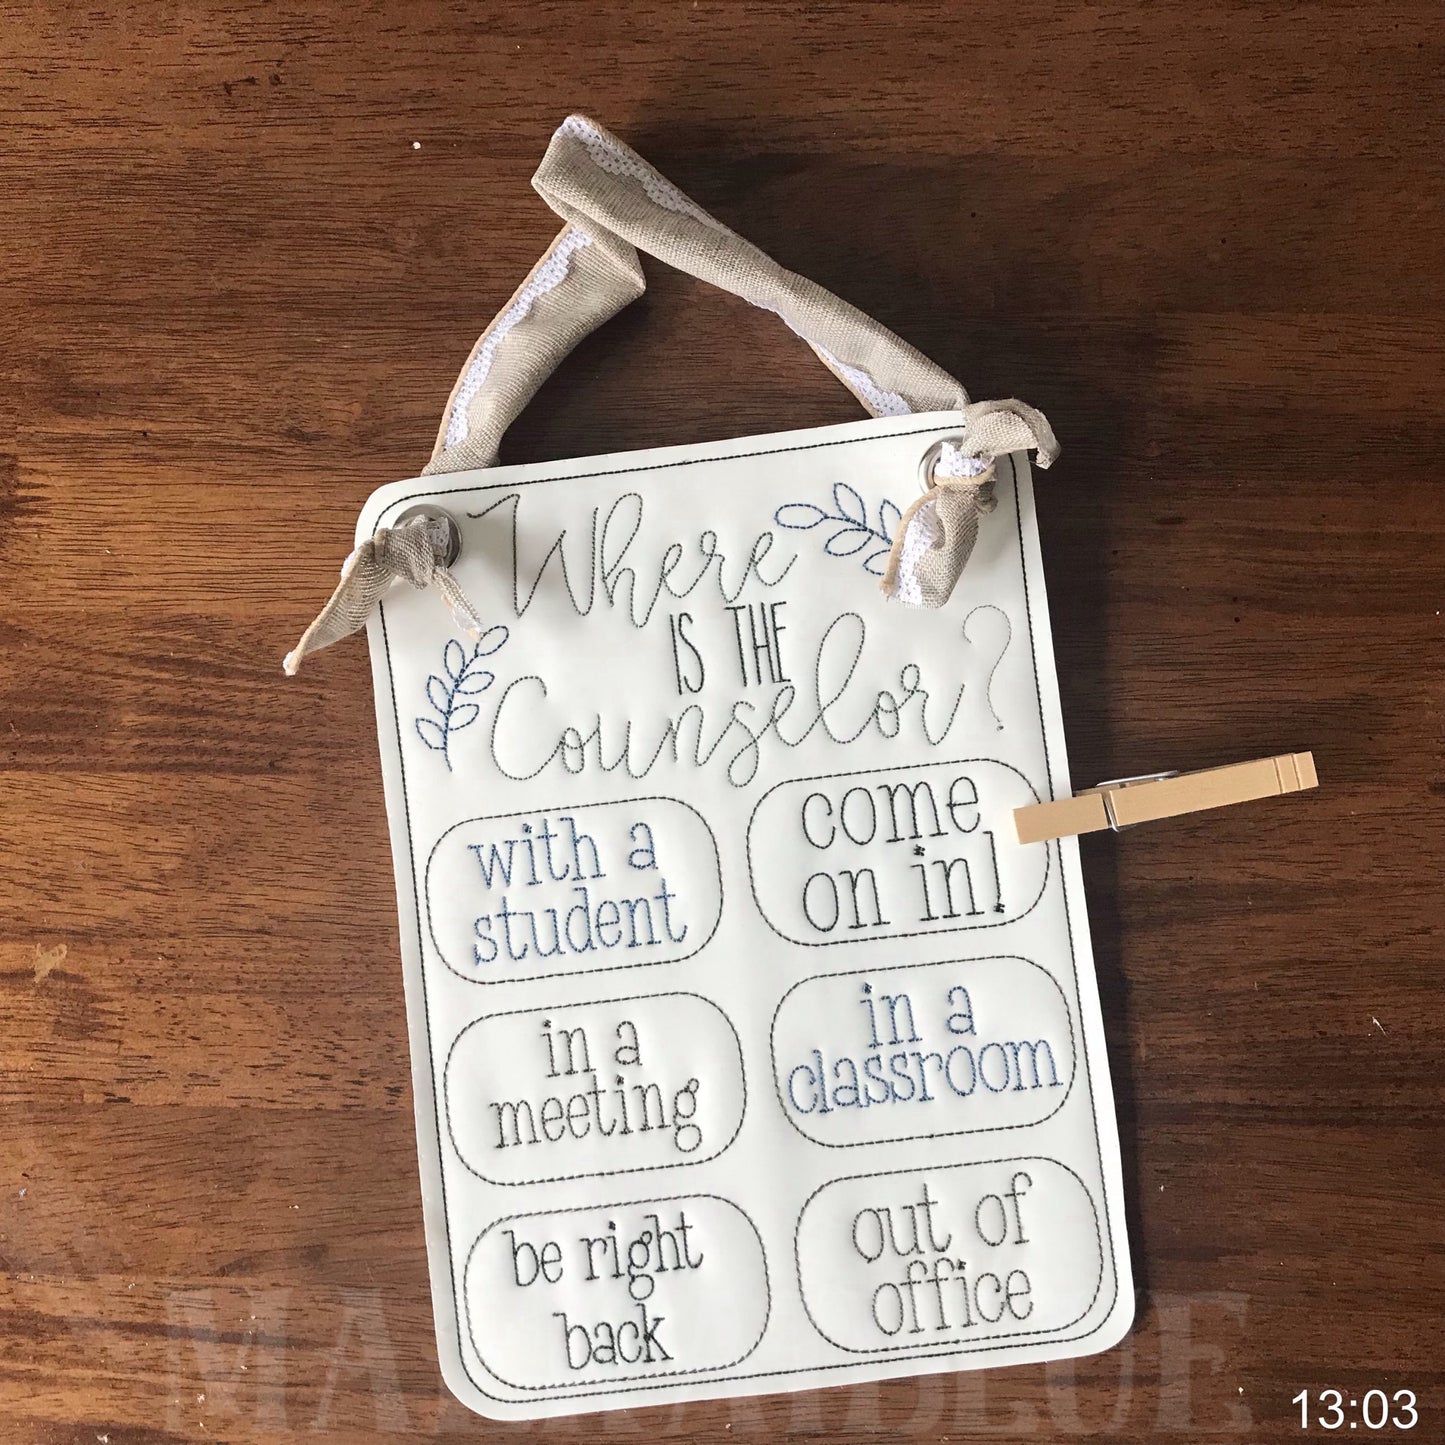 Where
IS THE
Counselor?
with a
student
come
on in!
in a
meeting
in a
classroom
be right
back
out of
office
13:03